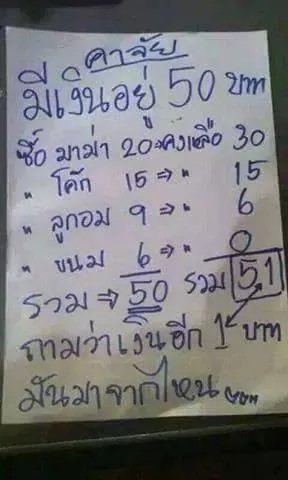 คาจัย
มีเงินอยู่ 50 บาท
ซื้อ มาม่า 20⇒คงเหลือ 30
" โค้ก 15⇒ " 15
" ลูกอม 9⇒ " 6
" ขนม 6⇒ " 0
รวม⇒50 รวม 51
ถามว่าเงินอีก 1 บาท
มันมาจากไหน